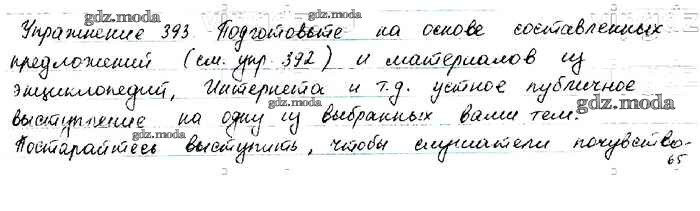 Упражнение 393 Подготовьте на основе составленных
предложений (см. упр. 392) и материалов из
энциклопедий, Интернета и т.д. устное публичное
выступление на одну из выбранных вами тем.
Постарайтесь выступить, чтобы слушатели почувство-
65
gdz.moda
gdz.moda
gdz.moda
gdz.moda
gdz.moda
gdz.moda
gdz.moda
gdz.moda